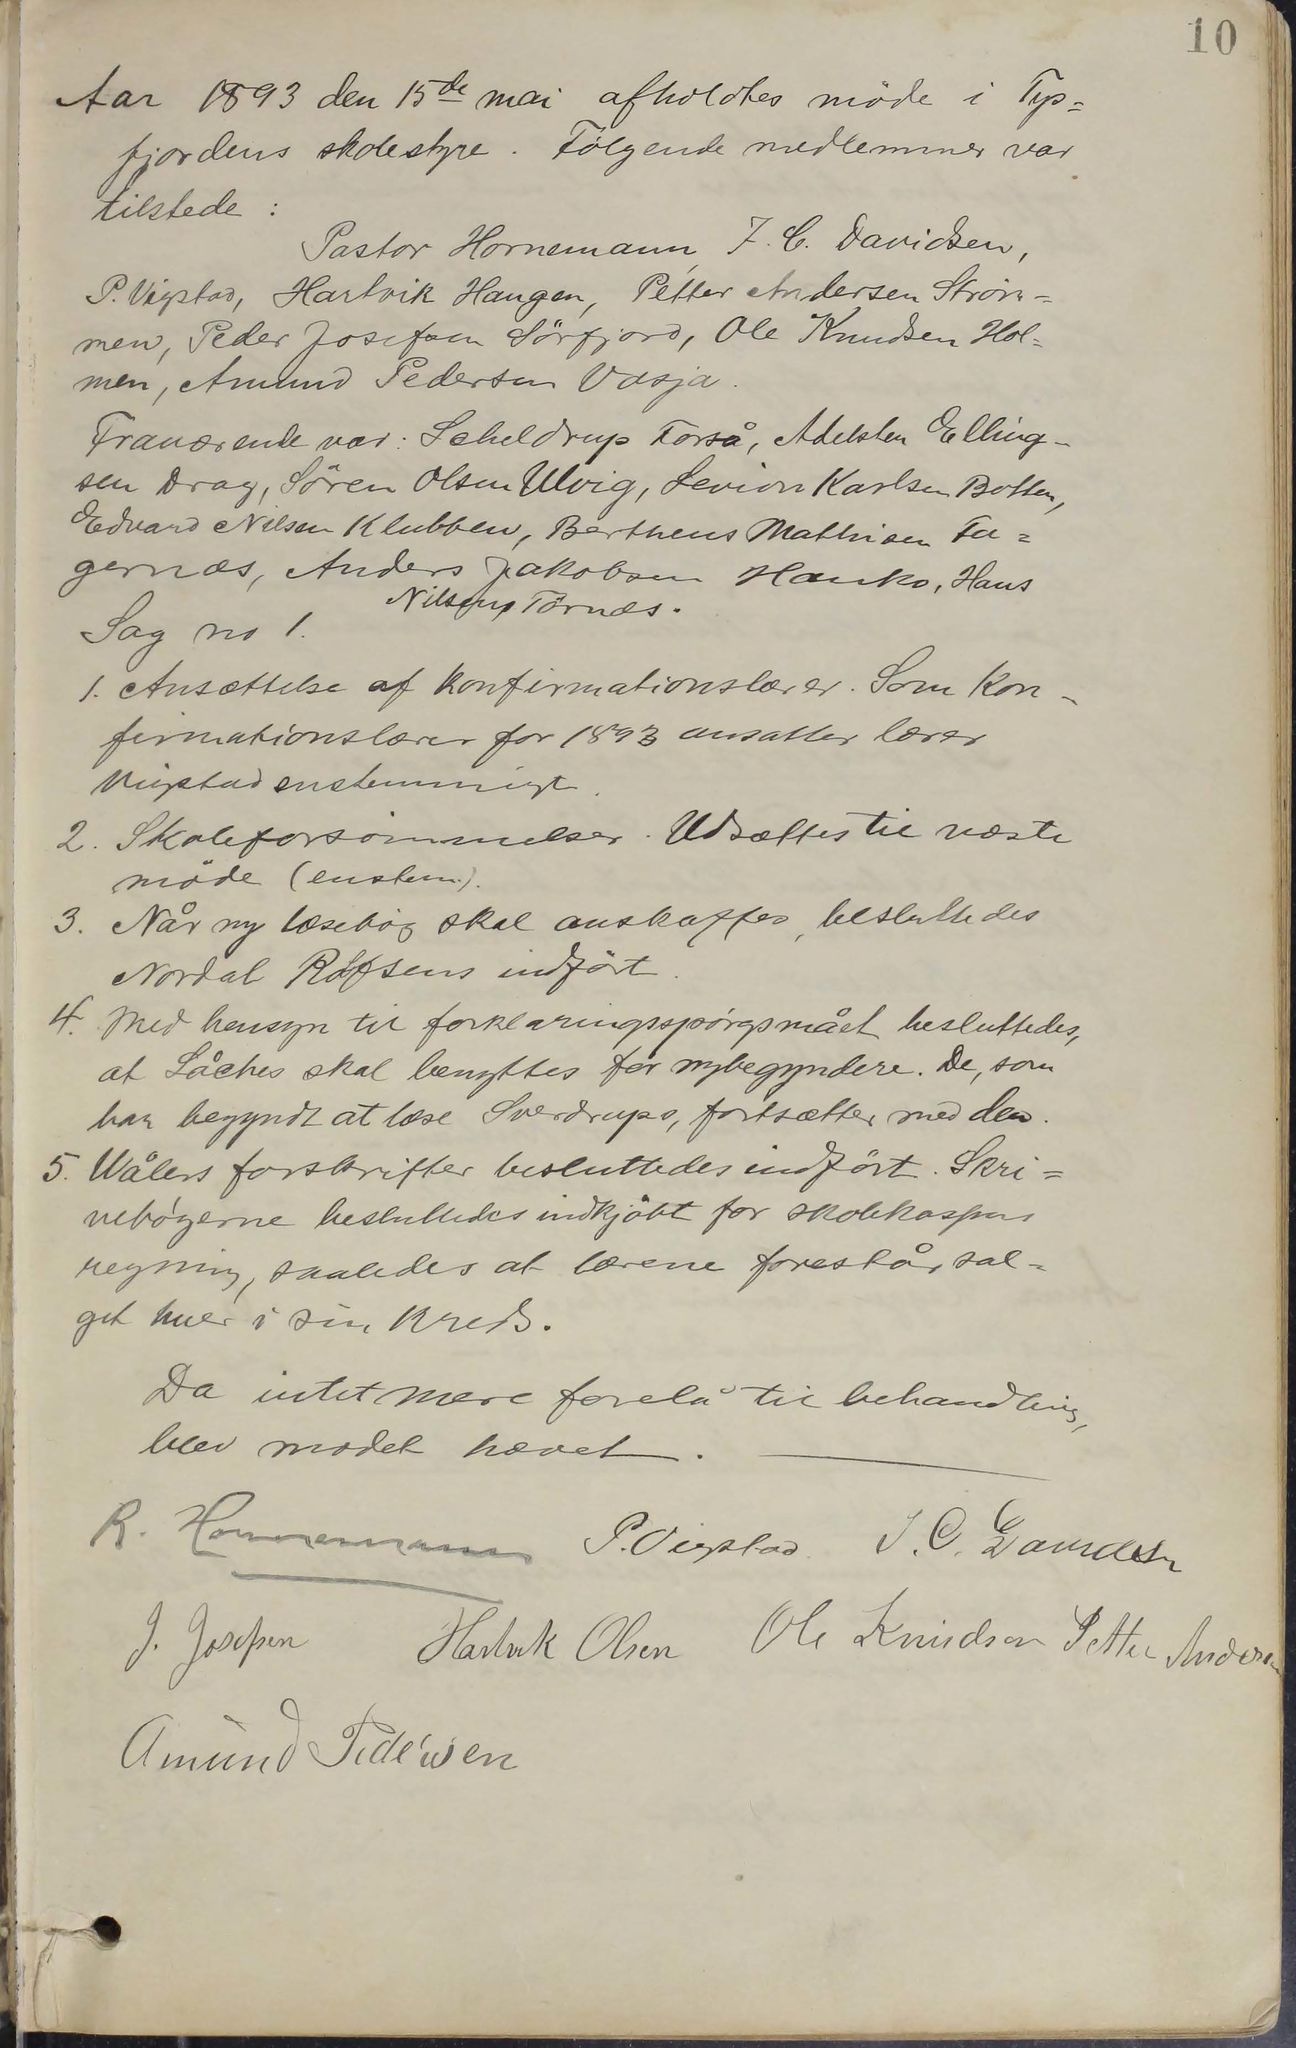 10
Aar 1893 den 15de mai afholdtes möde i Tys=
fjordens skolestyre. Følgende medlemmer var
tilstede:
Pastor Hornemann, J. C. Davidsen,
P. Vigstad, Hartvik Haugen, Petter Andersen Ström=
men, Peder Josefsen Sörfjord, Ole Knudsen Hol=
men, Amund Pedersen Vasja.
Fraværende var: Scheldrup Forså, Adelsten Elling-
sen Drag, Sören Olsen Ulvig, Levion Karlsen Botten,
Edvard Nilsen Klubben, Bertheus Mathisen Fa=
gernæs, Anders Jakobsen Hauko, Hans
Nilsen Tørnæs.
Sag no 1.
1. Ansættelse af konfirmationslærer. Som Kon-
firmationslærer for 1893 ansattes lærer
Vigstad enstemmigt.
2. Skoleforsömmelser. Udsættes til næste
möde (enstem.).
3. Når ny læsebog skal anskaffes, besluttedes
Nordal Rolfsens indfört.
4. Med hensyn til forklaringsspörgsmålet besluttedes,
at Låches skal benyttes for nybegyndere. De, som
har begyndt at læse Sverdrups, fortsætter med den.
5. Wålers forskrifter besluttedes indfört. Skri=
vebögerne besluttedes indkjöbt for skolekassens
regning, saaledes at lærene forestår sal=
get hver i sin Kreds.
Da intet mere forelå til behandling,
blev mødet hævet.
R. Hornemann P. Vigstad J. C. Davidsen
J. Josefsen Hartvik Olsen Ole Knudsen Petter Andersen
Amund Pedersen